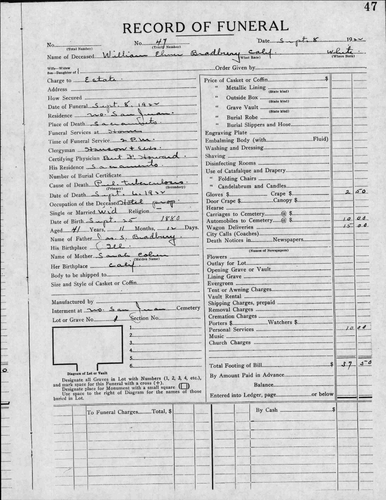 47
RECORD OF FUNERAL
No. 47 Date Sept. 8 1922
(Total Number) (Yearly Number)
Name of Deceased William Elmer Bradbury Calif. White
(What State) (Whose Book)
Wife—Widow
Son—Daughter of
Charge to Estate
Address
How Secured
Date of Funeral Sept. 8, 1922
Residence No. San Juan
Place of Death Sacramento
Funeral Services at Home
Time of Funeral Service 2 P.M.
Clergyman
Certifying Physician Howard
His Residence Sacramento
Number of Burial Certificate
Cause of Death Pul. Tuberculosis
Date of Death Sept. 6, 1922
Occupation of the Deceased Hotel prop
Single or Married Wid Religion
Date of Birth Sept. 25 1880
Aged 41 Years 11 Months, 12 Days
Name of Father S. Bradbury
His Birthplace Ill.
Name of Mother Sarah
Her Birthplace Calif
Body to be shipped to
Size and Style of Casket or Coffin
Manufactured by
Interment at No. San Juan Cemetery
Lot or Grave No. Section No.
1.
2.
3.
4.
5.
6.
Diagram of Lot or Vault
Designate all Graves in Lot with Numbers (1, 2, 3, 4, etc.),
and mark space for this Funeral with a cross (+).
Designate place for Monument with a small square (□)
Use space to right of Diagram for names of those
buried in Lot.
Order Given by
Price of Casket or Coffin $
" Metallic Lining
(State Kind)
" Outside Box
(State Kind)
" Grave Vault
(State Kind)
" Burial Robe
" Burial Slippers and Hose
Engraving Plate
Embalming Body (with Fluid)
Washing and Dressing
Shaving
Disinfecting Rooms
Use of Catafalque and Drapery
" Folding Chairs
" Candelabrum and Candles
Gloves $ Crape $ 2 50
Door Crape $ Canopy $
Hearse
Carriages to Cemetery @ $
Automobiles to Cemetery @ $ 10 00
Wagon Deliveries 15 00
City Calls (Coaches)
Death Notices in Newspapers
(Names of Newspapers)
Flowers
Outlay for Lot
Opening Grave or Vault
Lining Grave
Evergreen
Tent or Awning Charges
Vault Rental
Shipping Charges, prepaid
Removal Charges
Cremation Charges
Porters $ Watchers $
Personal Services 10 00
Music
Church Charges
Total Footing of Bill $ 37 50
By Amount Paid in Advance
Balance
Entered into Ledger, page or below.
To Funeral Charges, Total $ By Cash $